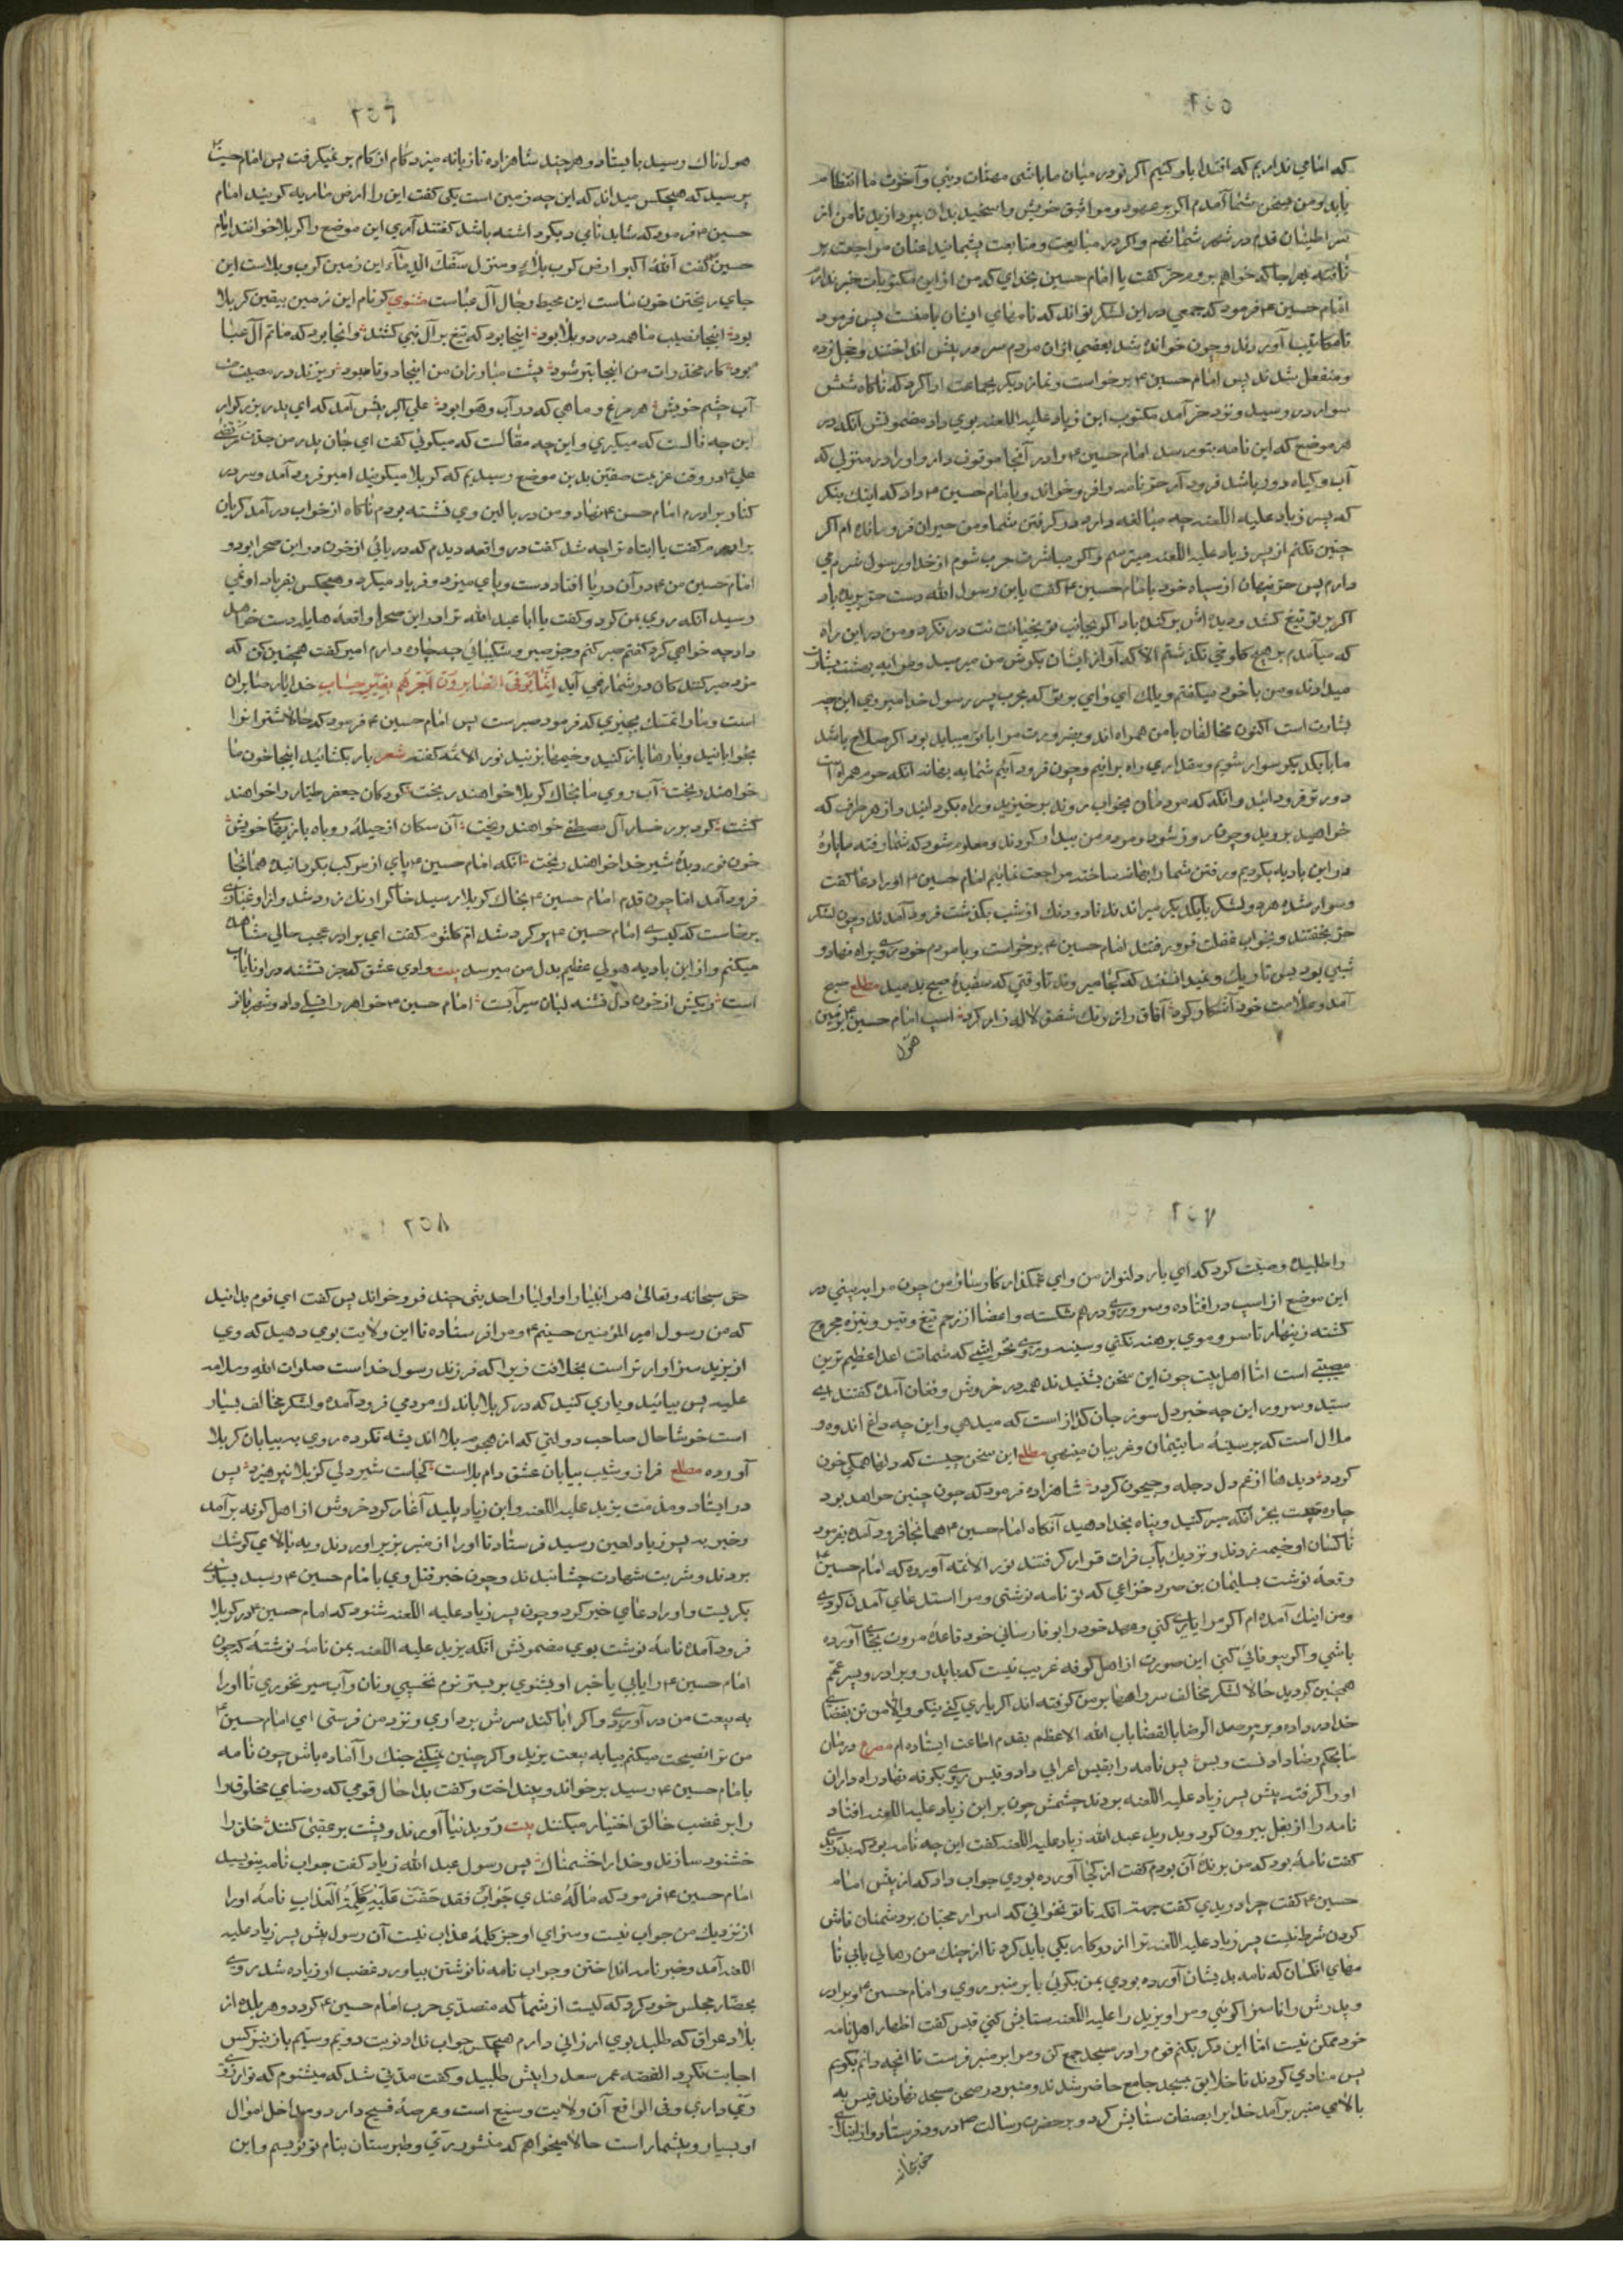 ۵۵۶
که امامی نداریم که اقتدا باو کنیم اکر تو در میان ما باشی مهمّات دینی و آخرت ما انتظام
یابد و من بسخن شما آمدم اکر بر عهود و مواثیق خویش راسخید بدان بپردازید تا من از
سر اطینان قدم در شهر شما نهم و اکر در مبایعت و متابعت پشمانید عنان مراجعت بر
تافته بهرجا که خواهم بروم حر کفت یا امام حسین بخدای که من از این مکتوبات خبر ندارم
امام حسین ؏ فرمود که جمعی در این لشکر تواند که نامهای ایشان بامنست پس فرمود
تا مکاتیب آوردند و چون خوانده شد بعضی از ان مردم سر در پیش انداختند و خجل زده
و منفعل شدند پس امام حسین ؏ برخواست و نماز دیکر بجماعت ادا کرد که ناکاه شش
سوار در رسید و نزد حر آمد مکتوب ابن زیاد علیه اللعنه بوی داد مضمونش آنکه در
هر موضع که این نامه بتو رسد امام حسین ؏ را در آنجا موقوف دار و او را در منزلی که
آب و کیاه دور باشد فرود آر حر نامه را فرو خواند و با امام حسین ؏ داد که اینک بنکر
که پسر زیاد علیه اللعنه چه مبالغه دارد در کرفتن شما و من حیران فرو مانده ام اکر
چنین نکنم از پسر زیاد علیه اللعنه میترسم و اکر مباشرت حرب شوم از خدا و رسول شرم می
دارم پس حر نهان از سپاه خود با امام حسین ؏ کفت یابن رسول الله دست حر بریده باد
اکر بر تو تیغ کشد و دیده اش برکنده باد اکر بجانب تو بخیانت در نکرد و من در این راه
که میآمدم بر هیچ کلوخی نکذشتم الا که آواز ایشان بکوش من میرسید و مرا به بهشت بشارت
میدادند و من با خود میکفتم ویلک ای وای بر تو که بحرب پسر رسول خدا میروی این چه
بشارت است اکنون مخالفان با من همراه اند و بضرورت مرا با تو میباید بود اکر صلاح باشد
ما با یکدیکر سوار شویم و مقداری راه برانیم و چون فرود آئیم شما به بهانه آنکه حرم همراه است
دورتر فرود آئید و آنکه که مردمان بخواب روند برخیزید و راه بکردانید و از هر طرف که
خواهید بروید و چون روز شود و مردم من بیدار کردند و معلوم شود که شما رفته ما پارهٔ
در این بادیه بکردیم و رفتن شما را بهانه ساخته مراجعت نمائیم امام حسین ؏ او را دعا کفت
و سوار شده هر دو لشکر با یکدیکر میراندند تا درنک از شب بکذشت فرود آمدند و چون لشکر
حر بخفتند و بخواب غفلت فرو رفتند امام حسین ؏ برخواست و با مردم خود روی براه نهاد و
شبی بود بس تاریک و نمیدانستند که کجا میروند تا وقتی که سفیدهٔ صبح بدمید مطلع صبح
آمد و علامت خود آشکار کرد آفاق را از رنک شفق لاله زار کرد اسب امام حسین ؏ بزمین
هول
۵۵۷
هولناک رسید بایستاد و هر چند شاهزاده تازیانه میزد کام از کام بر نمیکرفت پس امام حسین ؏
پرسید که هیچکس میداند که این چه زمین است یکی کفت این را ارض ماریه کویند امام
حسین ؏ فرمود که شاید نامی دیکر داشته باشد کفتند آری این موضع را کربلا خوانند امام
حسین کفت آللهُ اکبر ارض کرب بلاءٍ و منزل سَفْک الدِّمآء این زمین کرب و بلاست این
جای ریختن خون ماست این محیط رحال آل عباست مثنوی کر نام این زمین بیقین کربلا
بود اینجا نصیب ما همه درد و بلا بود اینجا بود که تیغ بر آل نبی کشند و انجا بود که ماتم آل عبا
بود کار مخدرات من اینجا بتر شود پشت مبارزان من اینجا دوتا بود ریزند در مصیبت من
آب چشم خویش هر مرغ و ماهی که در آب و هوا بود علی اکبر پیش آمد که ای پدر بزرکوار
این چه فالست که میکیری و این چه مقالست که میکوئی کفت ای جان پدر من جدّت مرتضی
علی ؏ در وقت عزیمت صفین بدین موضع رسیدیم که کربلا میکویند امیر فرود آمد و سر در
کنار برادرم امام حسن ؏ نهاد و من در بالین وی نشسته بودم ناکاه از خواب در آمد کریان
برادرم کفت یا ابتاه ترا چه شد کفت در واقعه دیدم که دریائی از خون در این صحرا بود و
امام حسین من ؏ در آن دریا افتاد دست و پای میزد و فریاد میکرد و هیچکس بفریاد او نمی
رسید آنکه روی بمن کرد و کفت یا ابا عبد الله ترا در این صحرا واقعهٔ هایل دست خواهد
داد چه خواهی کرد کفتم صبر کنم و جز صبر و شکیبائی چه چاره دارم امیر کفت همچنین کن که
مزد صبر کنندکان در شمار نمی آید اِنَّمٰا یُوَفَّی الصّٰابِرُونَ اَجْرَهُمْ بِغَیْرِ حِسٰابٍ خدا یار صابران
است و ما را تمسّک بچیزی که فرمود صبرست پس امام حسین ؏ فرمود که حالا شترانرا
بخوابانید و بارها باز کنید و خیمها بزنید نور الائمه کفته شعر بار بکشائید اینجا خون ما
خواهند ریخت آب روی ما بخاک کربلا خواهند ریخت کودکان جعفر طیار را خواهند
کشت کرد بر رخسار آل مصطفی خواهند ریخت آن سکان از حیلهٔ روباه بازیهای خویش
خون نور دیدهٔ شیر خدا خواهند ریخت آنکه امام حسین ؏ پای از مرکب بکردانیده همانجا
فرود آمد اما چون قدم امام حسین ؏ بخاک کربلا رسید خاک را رنک زرد شد و از او غباری
برخاست که کیسوی امام حسین ؏ پر کرد شد ام کلثوم کفت ای برادر عجب حالی مشاهده
میکنم و از این بادیه هولی عظیم بدل من میرسد بیت وادی عشق که جز تشنه در او نایاب
است ریکش از خون دل تشنه لبان سیرآبست امام حسین ؏ خواهر را تسلی داد و شهر بانو
۵۵۷
را طلبیده وصیّت کرد که ای یار دلنواز من و ای غمکذار کار ساز من چون مرا ببینی در
این موضع از اسب در افتاده و سر و روی در هم شکسته و اعضا از زخم تیغ و تیر و نیزه مجروح
کشته زینهار تا سر و موی برهنه نکنی و سینه و روی نخراشی که شماتت اعدا عظیم ترین
مصیبتی است امّا اهل بیت چون این سخن بشنیدند همه در خروش و فغان آمده کفتند ای
سیّد و سرور این چه خبر دل سوز جان کداز است که میدهی و این چه داغ اندوه و
ملال است که بر سینهٔ ما یتیمان و غریبان مینهی مطلع این سخن چیست که دلها همکی خون
کردد دیدها از غم دل دجله و جیحون کردد شاهزاده فرمود که چون چنین خواهد بود
چاره نیست بجز آنکه صبر کنید و پناه بخدا دهید آنکاه امام حسین ؏ همانجا فرود آمده بفرمود
تا کسان او خیمه زدند و نزدیک بآب فرات قرار کرفتند نور الائمه آورده که امام حسین ؏
رقعهٔ نوشت بسلیمان بن صرد خزاعی که تو نامه نوشتی و مرا استدعای آمدن کردی
و من اینک آمده ام اکر مرا یاری کنی و عهد خود را بوفا رسانی خود قاعدهٔ مروت بجای آورده
باشی و اکر بیوفائی کنی این صورت از اهل کوفه غریب نیست که با پدر و برادر و پسر عمّم
همچنین کردید حالا لشکر مخالف سر راهها بر من کرفته اند اکر یاری کنی نیکو والا من تن بقضای
خدا در داده و بر موجب الرضا بالقضا باب الله الاعظم بقدم اطاعت ایستاده ام مصرع درمان
ما بحکم رضا دادنست و بس پس نامه را بقیس اعرابی داد و قیس روی بکوفه نهاد راه داران
او را کرفته پیش پسر زیاد علیه اللعنه بردند چشمش چون بر ابن زیاد علیه اللعنه افتاد
نامه را از بغل بیرون کرد و بدرید عبد الله زیاد علیه اللعنه کفت این چه نامه بود که بدریدی
کفت نامهٔ بود که من برندهٔ آن بودم کفت از کجا آورده بودی جواب داد که از پیش امام
حسین ؏ کفت چرا دریدی کفت جهة آنکه تا تو نخوانی که اسرار محبّان بر دشمنان فاش
کردن شرط نیست پسر زیاد علیه اللعنه ترا از دو کار یکی باید کرد تا از چنک من رهائی یابی تا
نامهای انکسان که نامه بدیشان آورده بودی بمن بکوئی یا بر منبر روی و امام حسین ؏ و برادر
و پدرش را ناسزا کوئی و مرا و یزید را علیه اللعنه ستایش کنی قیس کفت اظهار اهل نامه
خود ممکن نیست امّا این دکر بکنم قوم را در مسجد جمع کن و مرا بر منبر فرست تا آنچه دانم بکویم
پس منادی کردند تا خلایق بمسجد جامع حاضر شدند و منبر در صحن مسجد نهادند قیس به
بالای منبر بر آمد خدایرا بصفات ستایش کرد و بر حضرت رسالت ص درود فرستاد و از ابنای
حق سبحانه
۵۵۸
حق سبحانه و تعالی هر انبیا را و اولیا را حدیثی چند فرو خواند پس کفت ای قوم بدانید
که من رسول امیر المؤمنین حسینم ؏ و مرا فرستاده تا این ولایت بوی دهید که وی
از یزید سزاوارتر است بخلافت زیرا که فرزند رسول خداست صلوات الله و سلامه
علیه پس بیائید و یاری کنید که در کربلا با اندک مردمی فرود آمده و لشکر مخالف بسیار
است خوشا حال صاحب دولتی که از هجوم بلا اندیشه نکرده روی به بیابان کربلا
آورده مطلع فراز و شیب بیابان عشق دام بلاست کجاست شیر دلی کز بلا نپرهیزد پس
در ایستاد و مذمّت یزید علیه اللعنه و ابن زیاد پلید آغاز کرد خروش از اهل کوفه برآمد
و خبر به پسر زیاد لعین رسید فرستاد تا او را از منبر بزیر آوردند و به بالای کوشک
بردند و شربت شهادت چشانیدند و چون خبر قتل وی با امام حسین ؏ رسید بسیاری
بکریست و او را دعای خیر کرد و چون پسر زیاد علیه اللعنه شنود که امام حسین ؏ در کربلا
فرود آمده نامهٔ نوشت بوی مضمونش آنکه یزید علیه اللعنه بمن نامهٔ نوشته که چون
امام حسین ؏ را یابی یا خبر او بشنوی بر بستر نرم نخسپی و نان و آب سیر نخوری تا او را
به بیعت من در آوری و اکر ابا کند سرش برداری و نزد من فرستی ای امام حسین ؏
من ترا نصیحت میکنم بیا به بیعت یزید و اکر چنین نمیکنی جنک را آماده باش چون نامه
با امام حسین ؏ رسید برخواند و بینداخت و کفت بدا حال قومی که رضای مخلوق را
را بر غضب خالق اختیار میکنند بیت رو بدنیا آورند و پشت بر عقبی کنند خلق را
خشنود سازند و خدا را خشمناک پس رسول عبد الله زیاد کفت جواب نامه بنویسید
امام حسین ؏ فرمود که مٰا لَهُ عندی جَوٰابٌ فقد حَقّتْ عَلَیْهِ کَلِمَةُ الْعَذٰابِ نامهٔ او را
از نزدیک من جواب نیست و سزای او جز کلمهٔ عذاب نیست آن رسول پیش پسر زیاد علیه
اللعنه آمد و خبر نامه انداختن و جواب نامه نانوشتن بیاورد غضب او زیاده شد روی
بحضّار مجلس خود کرد که کیست از شما که متصدّی حرب امام حسین ؏ کردد و هر بلده از
بلاد عراق که طلبد بوی ارزانی دارم هیچکس جواب نداد نوبت دویم و سیّم باز نیز کس
اجابت نکرد القصه عمر سعد را پیش طلبید و کفت مدّتی شد که میشنوم که تو آرزوی
ری داری و فی الواقع آن ولایت وسیع است و عرصهٔ فسیح دارد و مداخل اموال
او بسیار و بیشمار است حالا میخواهم که منشور ری و طبرستان بنام تو نویسم و این